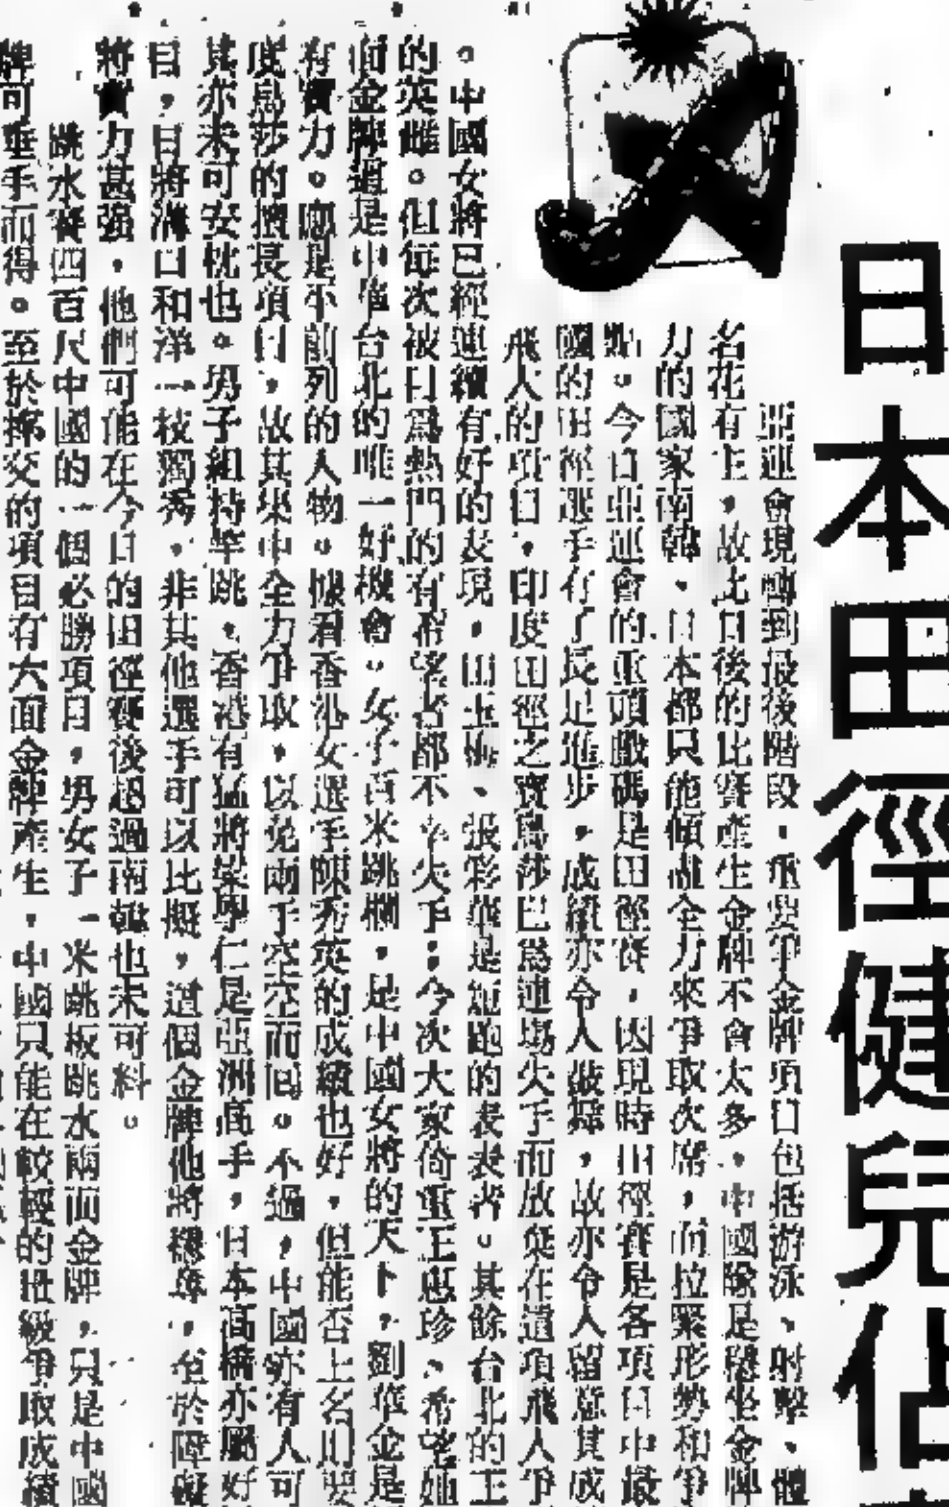 日本田徑健兒佔
亞運會現轉到最後階段，重要爭金牌項目包括游泳、射擊、體
名花有主，故此日後的比賽產生金牌不會太多，中國除是穩坐金牌
力的國家南韓、日本都只能傾盡全力來爭取次席，而拉緊形勢和爭
點。今日亞運會的重頭戲碼是田徑賽，因現時田徑賽是各項目中最
國的田徑選手有了長足進步，成績亦令人鼓舞，故亦令人留意其成
飛人的項目，印度田徑之寶烏莎已為連場失手而放棄在這項飛人爭
。中國女將已經連續有好的表現，田玉梅、張彩華是短跑的表表者。其餘台北的王
的英雌。但每次被目為熱門的有希望者都不幸失手；今次大家倚重王惠珍、希望她
面金牌這是中華台北的唯一好機會。女子百米跳欄，是中國女將的天下，劉華金是
有實力。應是名前列的人物。據看香港女選手陳秀英的成績也好，但能否上名則要
度烏莎的擅長項目，故其集中全力爭取，以免兩手空空而回。不過，中國亦有人可
其亦未可安枕也。男子組持竿跳，香港有猛將梁學仁是亞洲高手，日本高橋亦屬好
目，目將溝口和洋一枝獨秀，非其他選手可以比擬，這個金牌他將穩奪，至於障礙
將實力甚强，他們可能在今日的田徑賽後超過南韓也未可料。
跳水賽四百尺中國的一個必勝項目，男女子一米跳板跳水兩面金牌，只是中國
牌可垂手而得。至於摔交的項目有六面金牌產生，中國只能在較輕的班級爭取成績